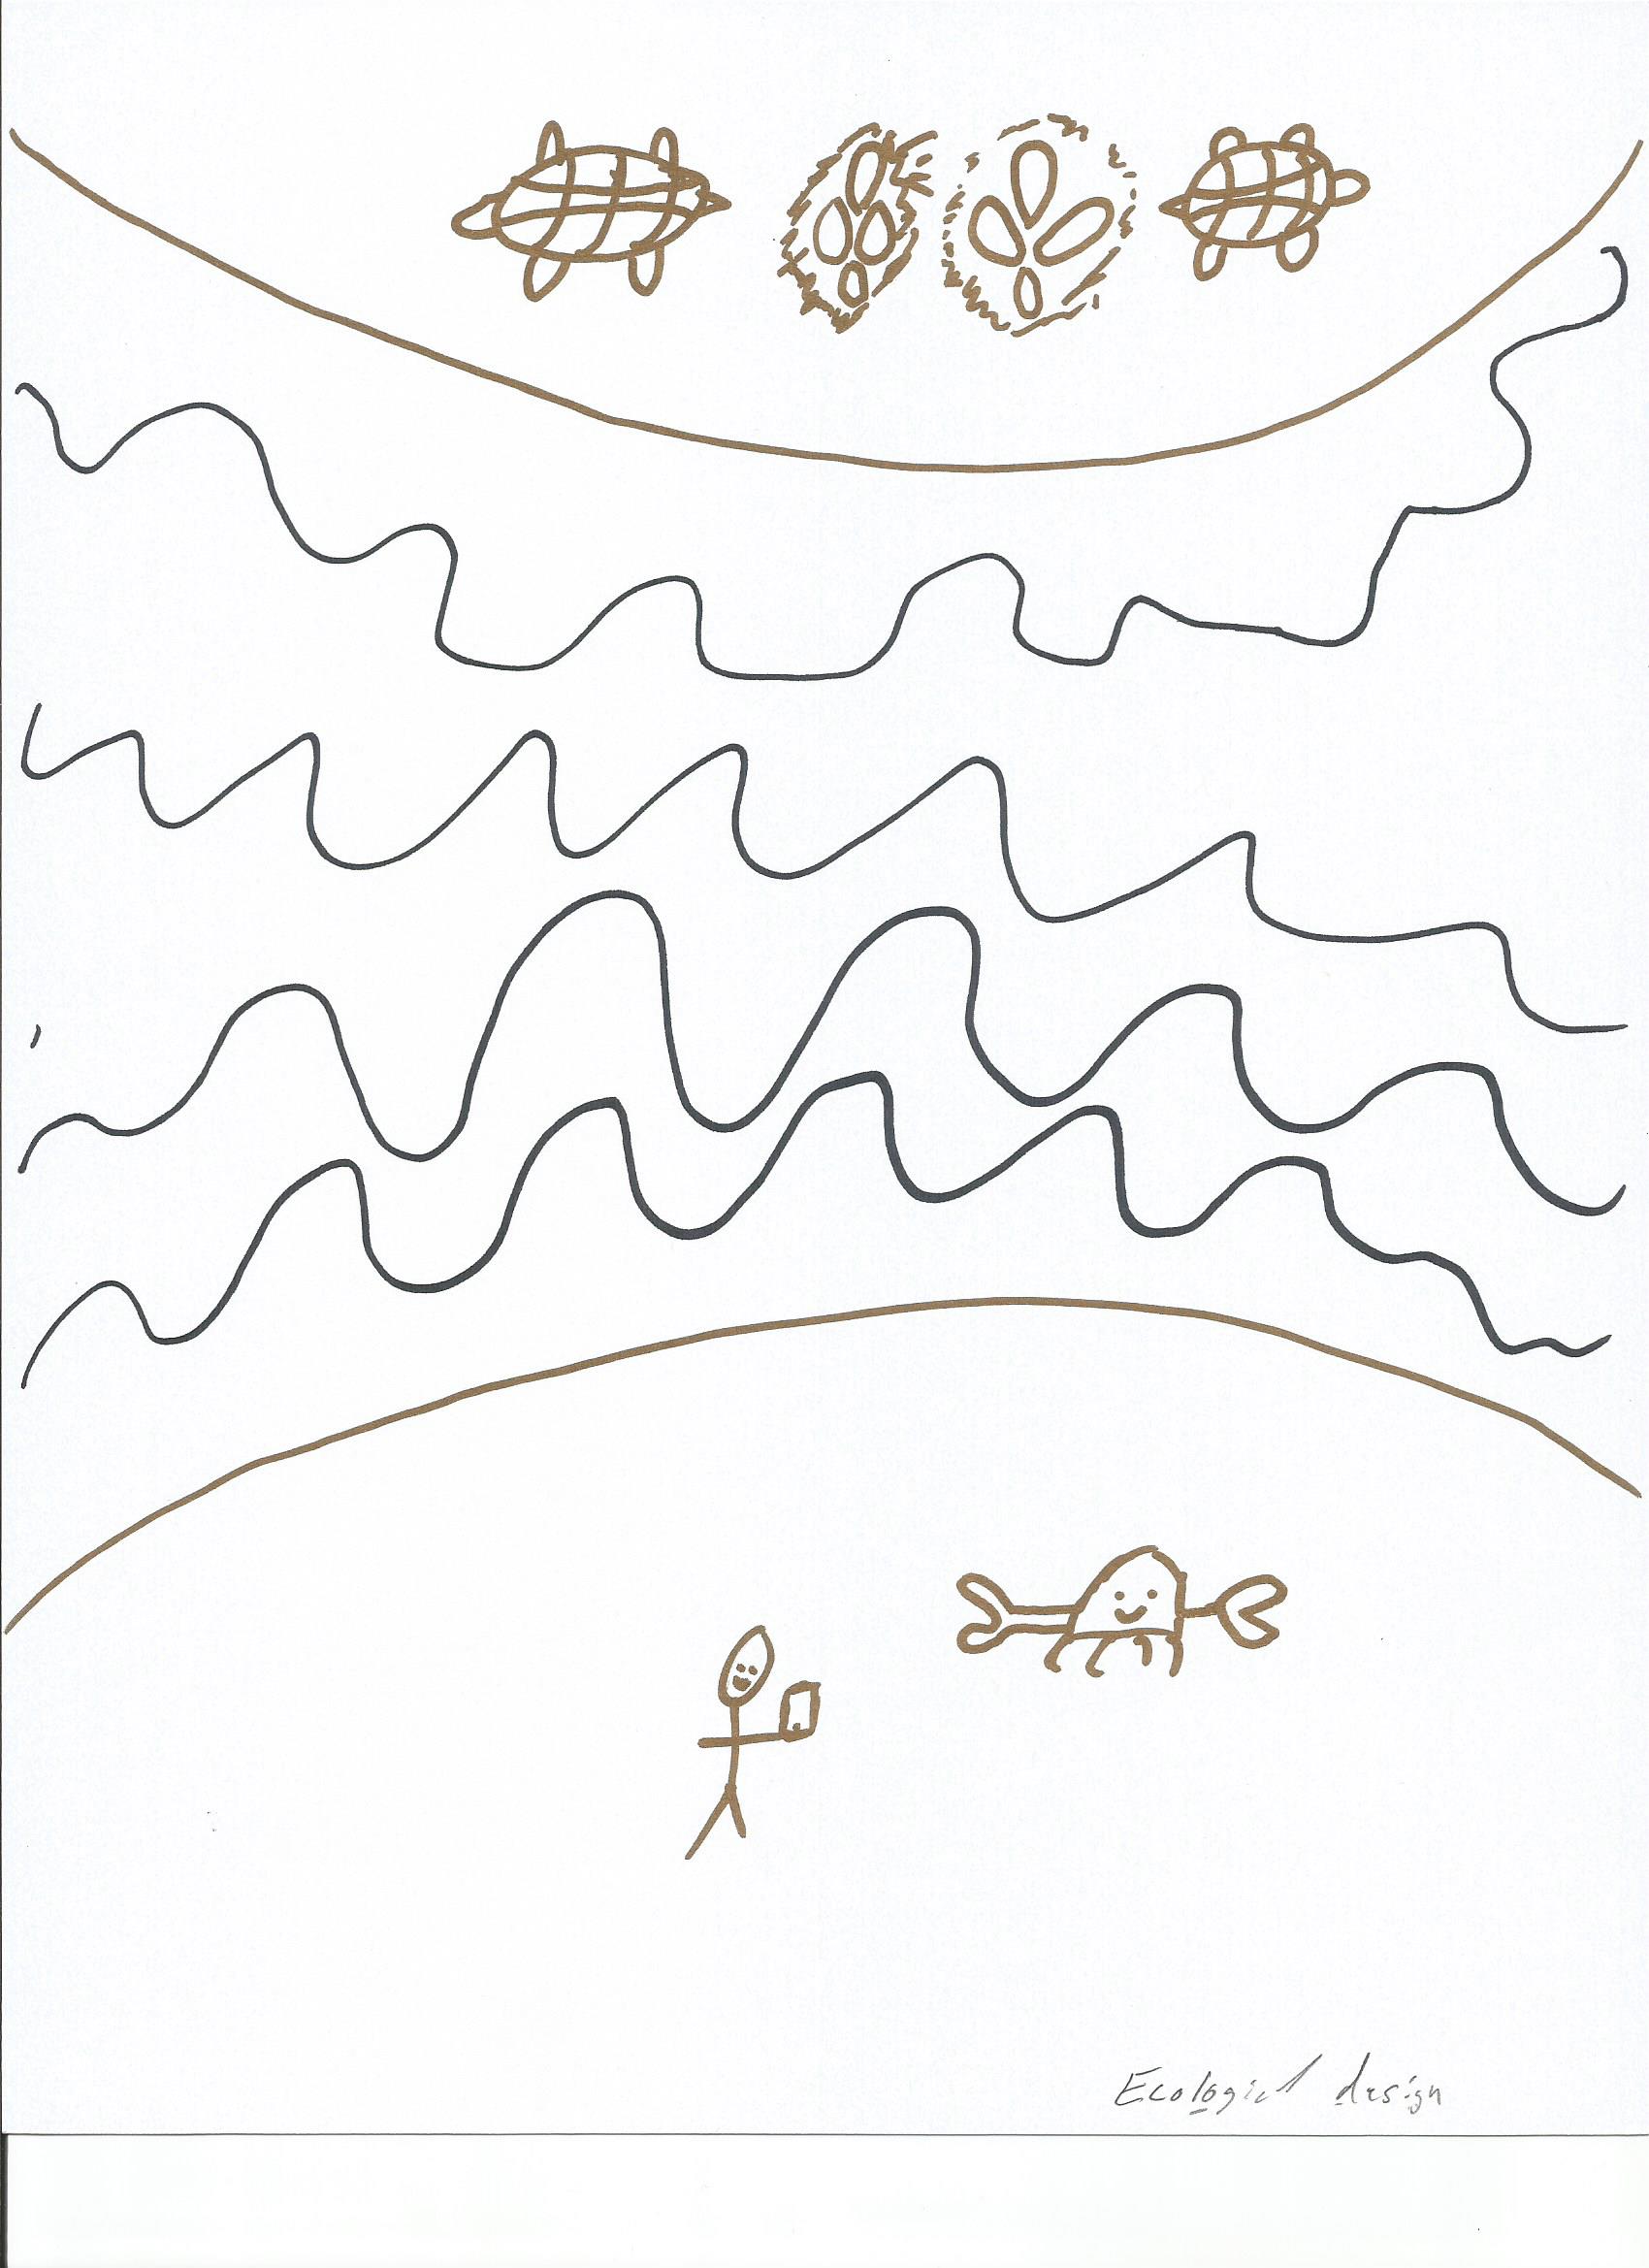 Ecological design